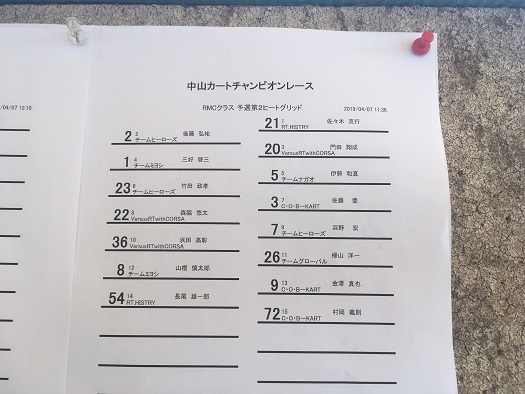 /04/07 12:10
中山カートチャンピオンレース
RMCクラス 予選第2ヒートグリッド
2019/04/07 11:36
21 1 佐々木 克行
RT.HISTRY
2 2 後藤 弘祐
チームヒーローズ
20 3 門田 翔成
VersusRTwithCORSA
1 4 三好 啓三
チームミヨシ
5 5 伊勢 和真
チームナガオ
23 6 竹田 政孝
チームヒーローズ
3 7 佐藤
C・O・B-KART
22 8 森脇 悠太
VersusRTwithCORSA
7 9 浜野 宏
チームヒーローズ
36 10 浜田 高彰
VersusRTwithCORSA
26 11 横山 洋一
チームグローバル
8 12 山根 慎太郎
チームミヨシ
9 13 金澤 真也
C・O・B-KART
54 14 長尾 雄一郎
RT.HISTRY
72 15 村岡 義則
C・O・B-KART